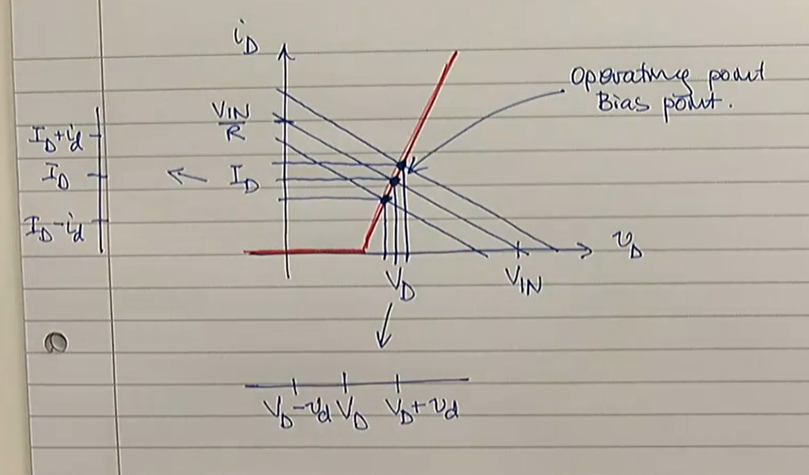 i_D
Operating point
Bias point.
V_IN
R
I_D+i_d
I_D
I_D
I_D-i_d
v_D
V_D
V_IN
V_D-v_d V_D V_D+v_d